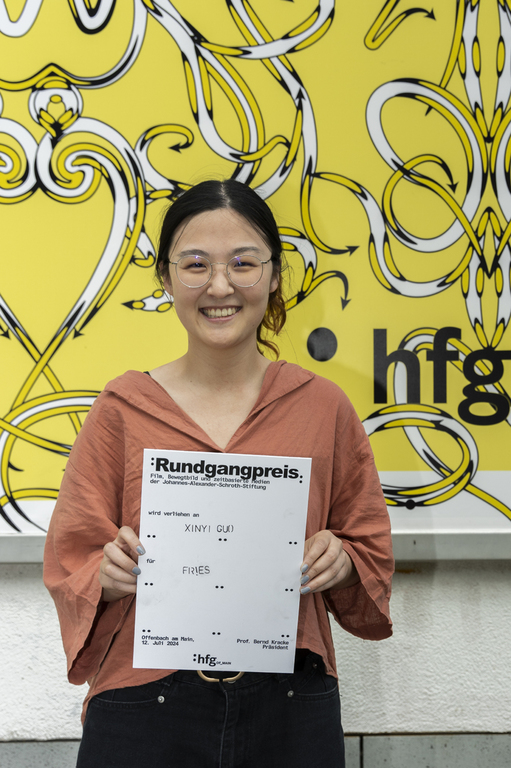 hfg
:Rundgangpreis.
Film, Bewegtbild und zeitbasierte Medien
der Johannes-Alexander-Schroth-Stiftung
wird verliehen an
XINYI GUO
für
FRIES
Offenbach am Main,
12. Juli 2024
Prof. Bernd Kracke
Präsident
:hfg OF_MAIN